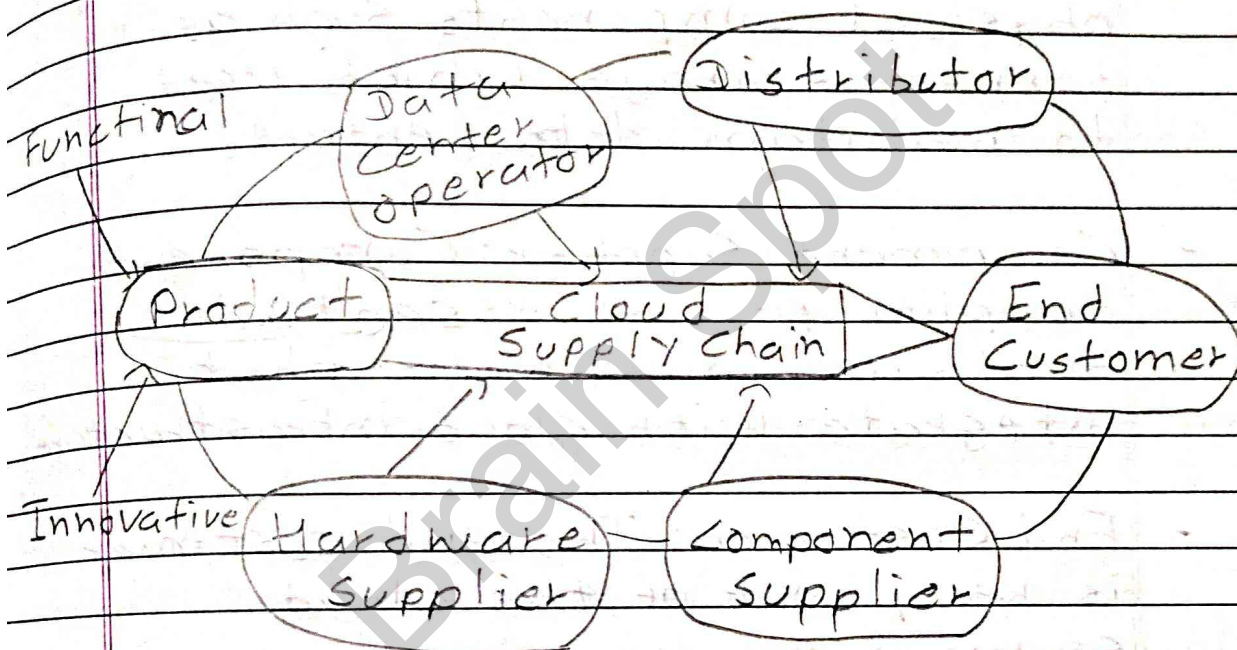 Distributor
Data
center
operator
Functinal
Product
Cloud
Supply Chain
End
Customer
Innovative
Hardware
Supplier
Component
Supplier
Brain Spot